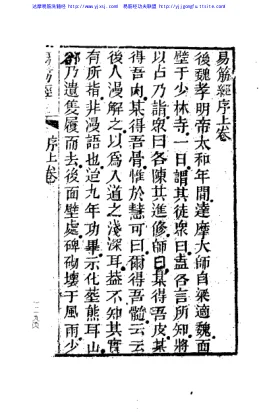 达摩易筋洗髓经 http://www.yjxsj.com 易筋经功夫联盟 http://yjjgongfu.ttsite.com
易筋經序上卷
後魏孝明帝太和年間達摩大師自梁適魏面
壁于少林寺一日謂其徒衆曰盍各言所知將
以占乃詣衆曰各陳其進修師曰某得吾皮某
得吾肉某得吾骨惟於慧可曰爾得吾髓云云
後人漫解之以爲入道之淺深耳葢不知其實
有所指非漫語也迨九年功畢示化葬熊耳山
郤乃遺隻履而去後面壁處碑砌壞于風雨少
易筋經
序上卷